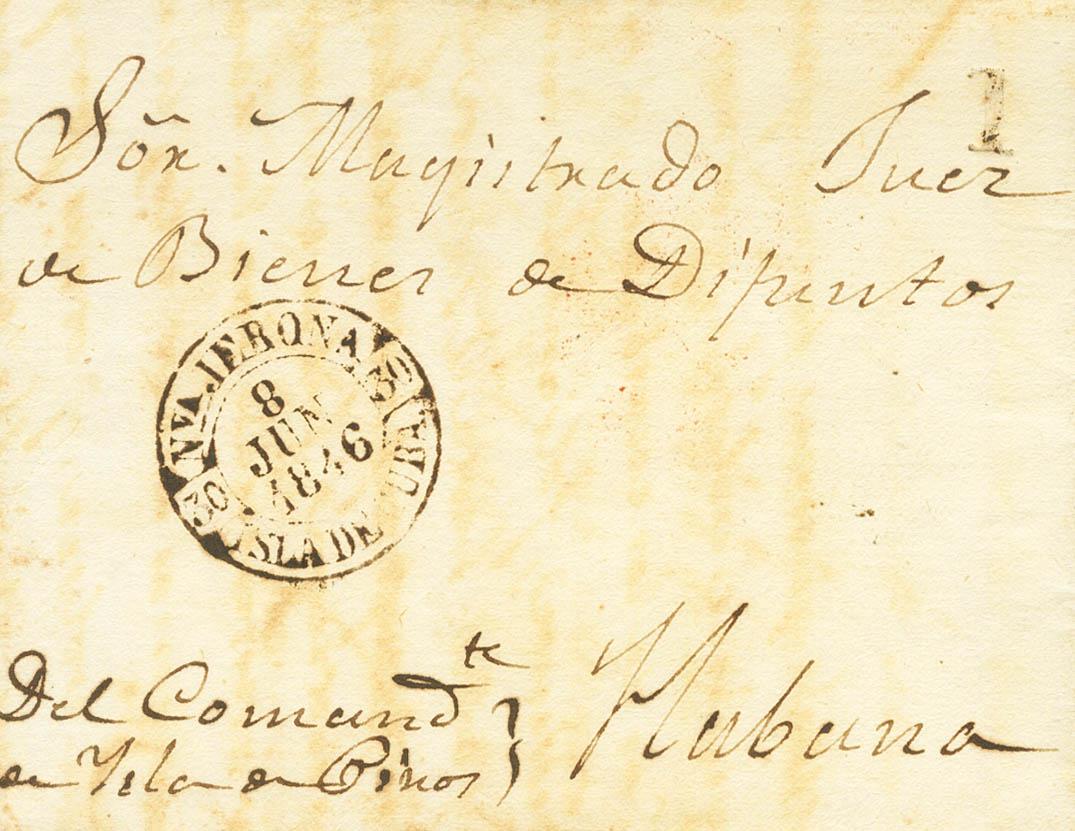 1
Sõr. Magistrado Juez
de Bienes de Difuntos
NVA JERONA
30
8
JUN
1846
30
ISLA DE CUBA
Del Comandte
de Isla de Pinos
Habana